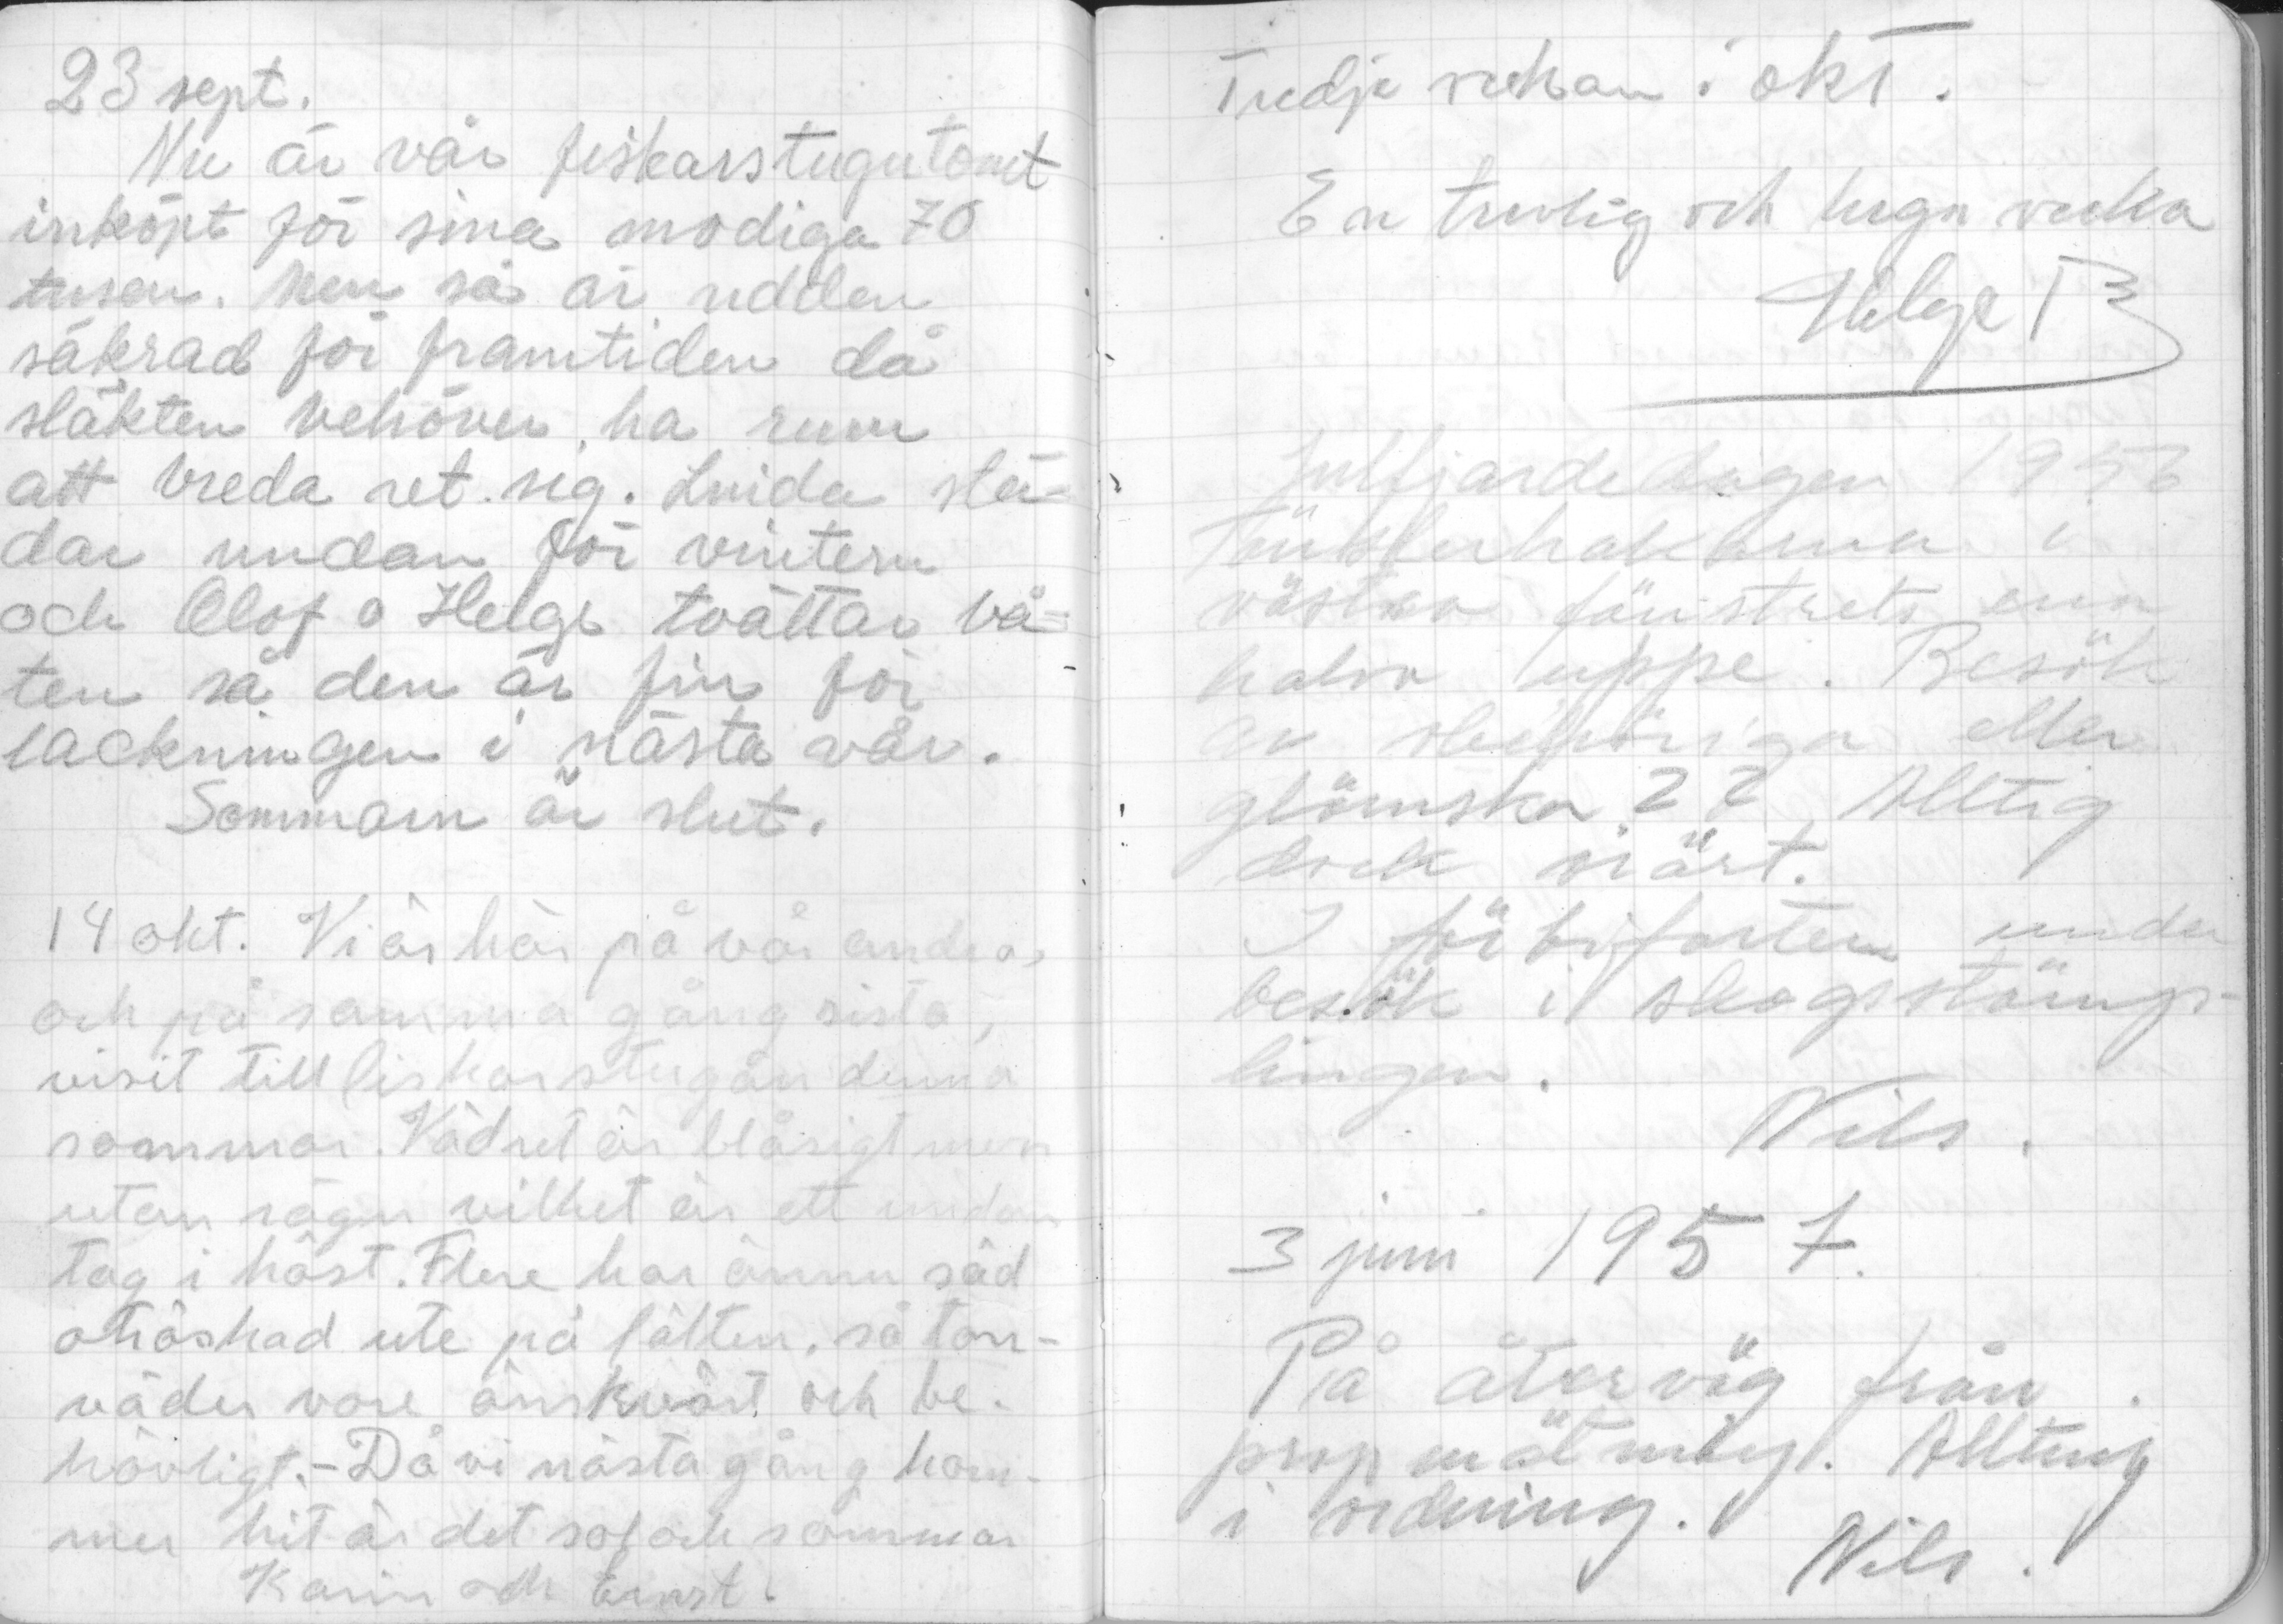 23 sept.
Nu är vår fiskarstugutomt
inköpt för sina modiga 70
tusen. Men så är udden
säkrad för framtiden då
släkten behöver ha rum
att breda ut sig. Linida stä-
dar undan för vintern
och Olof o Helge tvättar bå-
ten så den är fin för
lackningen i nästa vår.
Sommarn är slut.
14 okt. Vi är här på vår andra,
och på samma gång sista,
visit till fiskarstugan denna
sommar. Vädret är blåsigt men
utan rägn vilket är ett undan
tag i höst. Flere har ännu säd
otröskad ute på fälten, så torr-
väder vore önskvärt och be-
hövligt. - Då vi nästa gång kom-
mer hit är det sol och sommar
Karin och Ernst.
Tredje veckan i okt.
En trevlig och lugn vecka
Helge B
Julfjärdedagen 1956
Fönsterhakarna i
västra fönstrets ena
halva uppe. Besök
av obehöriga eller
glömska?? Alltig
dock klart.
I förbifarten under
besök i skogsstämp-
lingen.
Nils.
3 juni 1957.
På återväg från
propsmätning. Allting
i ordning.
Nils.